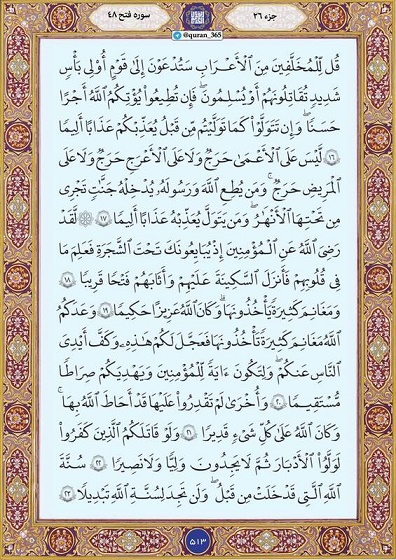 جزء ۲۶
سوره فتح ۴۸
@quran_365
قُل لِّلْمُخَلَّفِينَ مِنَ ٱلْأَعْرَابِ سَتُدْعَوْنَ إِلَىٰ قَوْمٍ أُو۟لِى بَأْسٍ
شَدِيدٍ تُقَٰتِلُونَهُمْ أَوْ يُسْلِمُونَ ۖ فَإِن تُطِيعُوا۟ يُؤْتِكُمُ ٱللَّهُ أَجْرًا
حَسَنًا ۖ وَإِن تَتَوَلَّوْا۟ كَمَا تَوَلَّيْتُم مِّن قَبْلُ يُعَذِّبْكُمْ عَذَابًا أَلِيمًا
۝١٦ لَّيْسَ عَلَى ٱلْأَعْمَىٰ حَرَجٌ وَلَا عَلَى ٱلْأَعْرَجِ حَرَجٌ وَلَا عَلَى
ٱلْمَرِيضِ حَرَجٌ ۗ وَمَن يُطِعِ ٱللَّهَ وَرَسُولَهُۥ يُدْخِلْهُ جَنَّٰتٍ تَجْرِى
مِن تَحْتِهَا ٱلْأَنْهَٰرُ ۖ وَمَن يَتَوَلَّ يُعَذِّبْهُ عَذَابًا أَلِيمًا ۝١٧ ۞ لَّقَدْ
رَضِىَ ٱللَّهُ عَنِ ٱلْمُؤْمِنِينَ إِذْ يُبَايِعُونَكَ تَحْتَ ٱلشَّجَرَةِ فَعَلِمَ مَا
فِى قُلُوبِهِمْ فَأَنزَلَ ٱلسَّكِينَةَ عَلَيْهِمْ وَأَثَٰبَهُمْ فَتْحًا قَرِيبًا ۝١٨
وَمَغَانِمَ كَثِيرَةً يَأْخُذُونَهَا ۗ وَكَانَ ٱللَّهُ عَزِيزًا حَكِيمًا ۝١٩ وَعَدَكُمُ
ٱللَّهُ مَغَانِمَ كَثِيرَةً تَأْخُذُونَهَا فَعَجَّلَ لَكُمْ هَٰذِهِۦ وَكَفَّ أَيْدِىَ
ٱلنَّاسِ عَنكُمْ وَلِتَكُونَ ءَايَةً لِّلْمُؤْمِنِينَ وَيَهْدِيَكُمْ صِرَٰطًا
مُّسْتَقِيمًا ۝٢٠ وَأُخْرَىٰ لَمْ تَقْدِرُوا۟ عَلَيْهَا قَدْ أَحَاطَ ٱللَّهُ بِهَا ۚ
وَكَانَ ٱللَّهُ عَلَىٰ كُلِّ شَىْءٍ قَدِيرًا ۝٢١ وَلَوْ قَٰتَلَكُمُ ٱلَّذِينَ كَفَرُوا۟
لَوَلَّوُا۟ ٱلْأَدْبَٰرَ ثُمَّ لَا يَجِدُونَ وَلِيًّا وَلَا نَصِيرًا ۝٢٢ سُنَّةَ
ٱللَّهِ ٱلَّتِى قَدْ خَلَتْ مِن قَبْلُ ۖ وَلَن تَجِدَ لِسُنَّةِ ٱللَّهِ تَبْدِيلًا ۝٢٣
۵۱۳